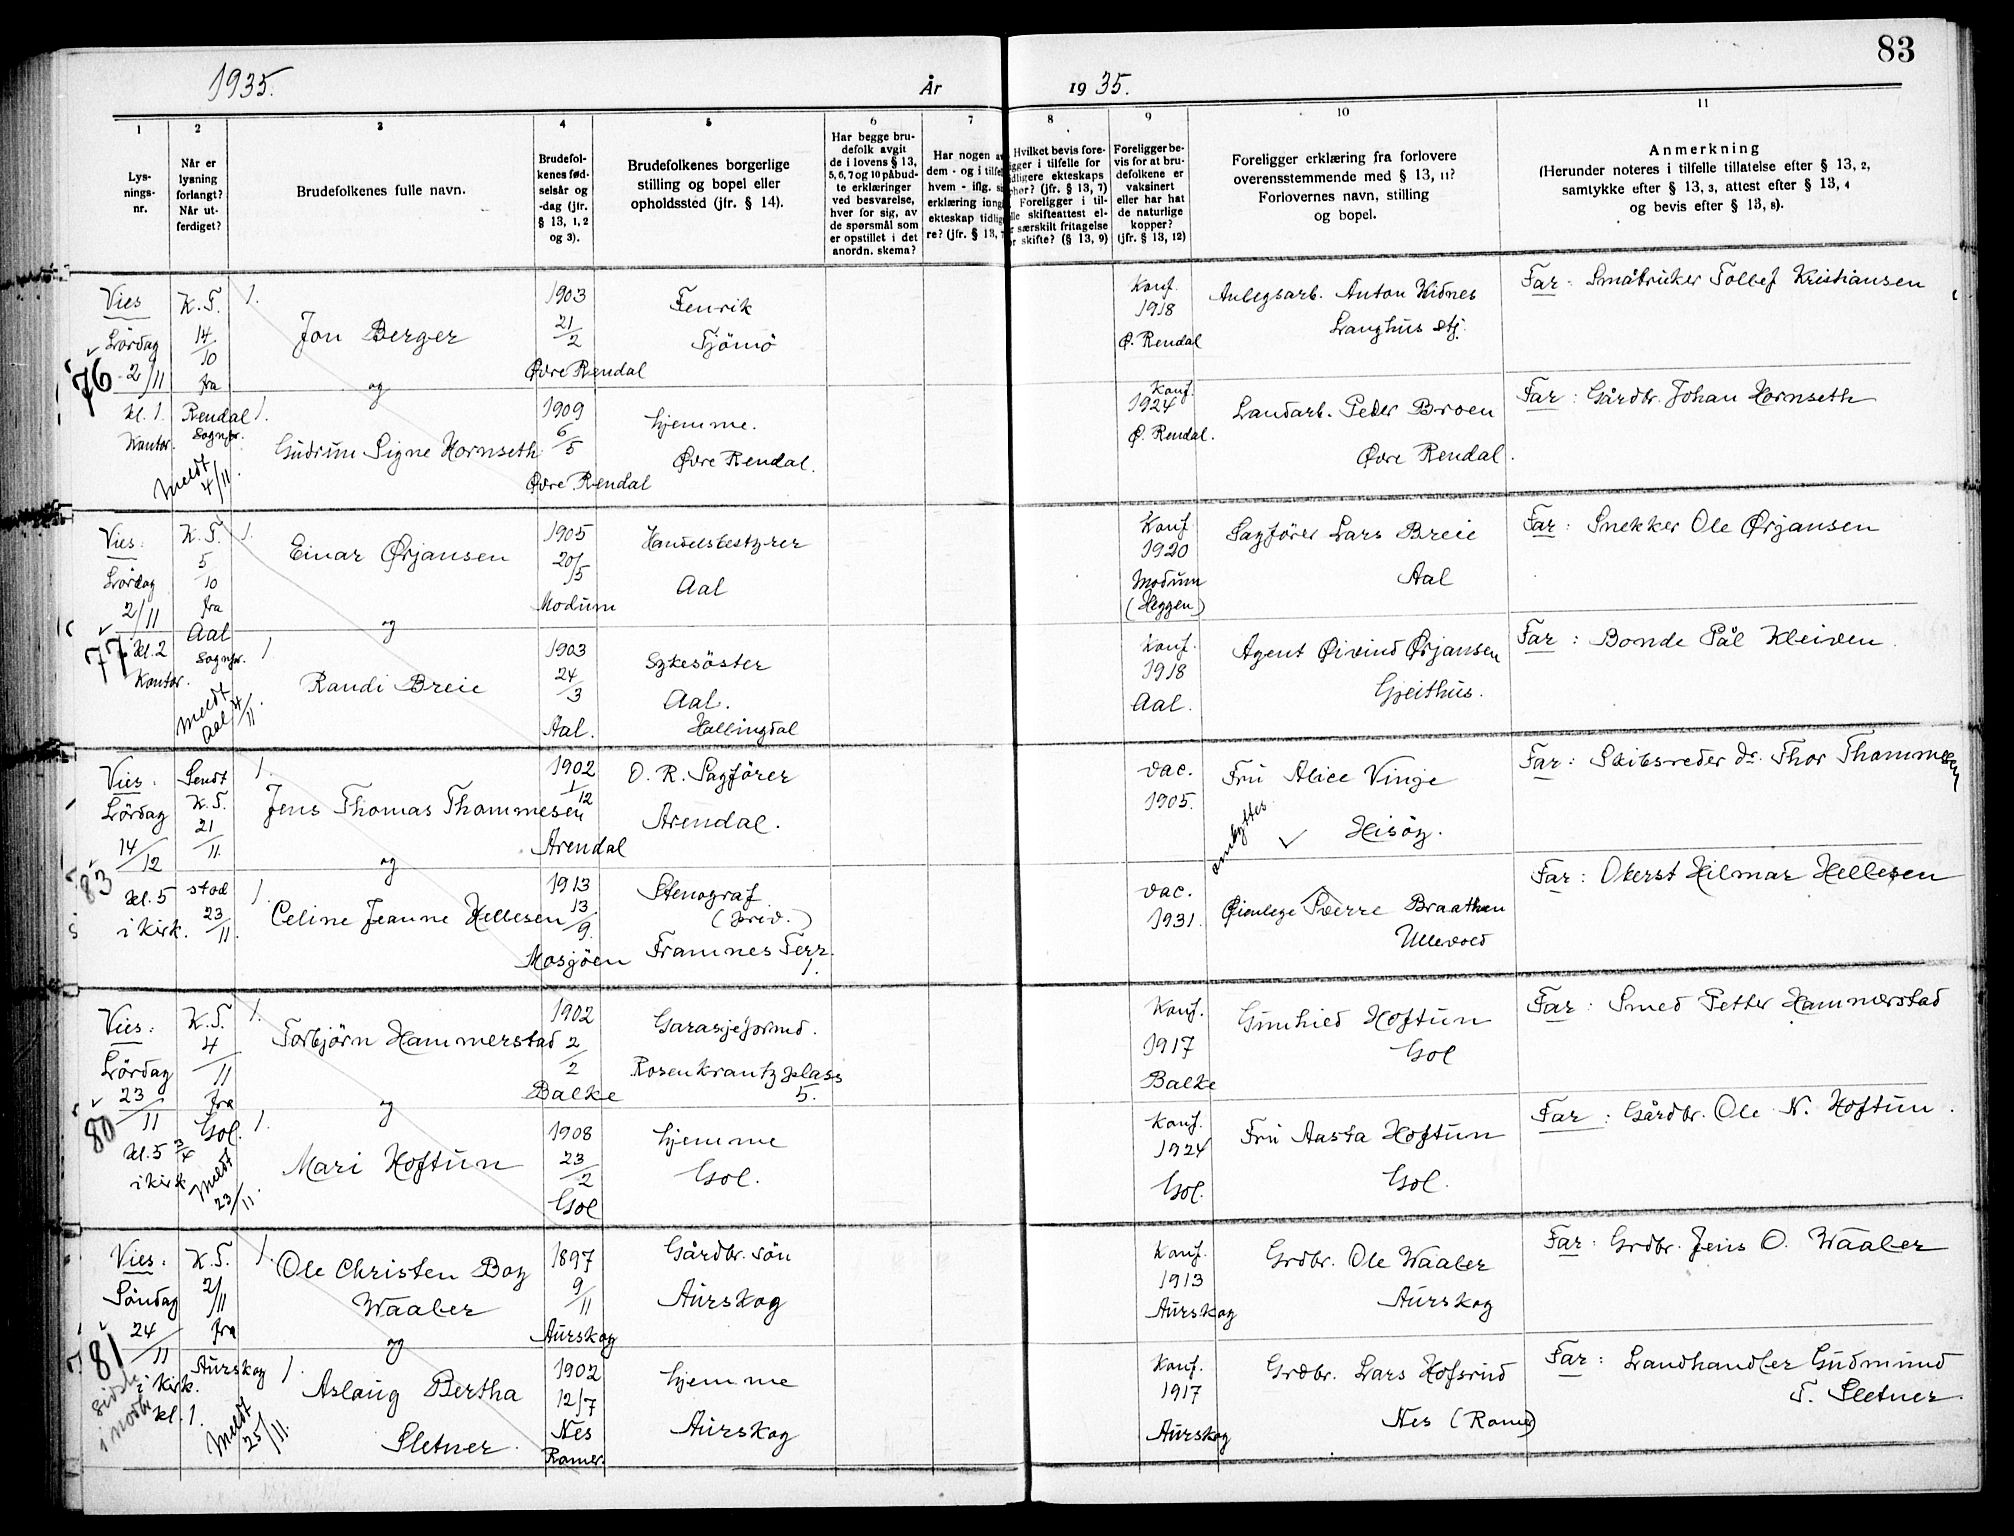 83
1935.
År
19 35.
1
2
3
4
5
6
7
8
9
10
11
Lys-
nings-
nr.
Når er
lysning
forlangt?
Når ut-
ferdiget?
Brudefolkenes fulle navn.
Brudefol-
kenes fød-
selsår og
-dag (jfr.
§ 13, 1, 2
og 3).
Brudefolkenes borgerlige
stilling og bopel eller
opholdssted (jfr. § 14).
Har begge bru-
defolk avgit
de i lovens § 13,
5, 6, 7 og 10 påbud-
te erklæringer
ved besvarelse,
hver for sig, av
de spørsmål som
er opstillet i det
anordn. skema?
Har nogen av
dem - og i tilfel
hvem - iflg. s
erklæring inng
ekteskap tidlig
re? (jfr. § 13, 7
Hvilket bevis fore-
igger i tilfelle for
idligere ekteskaps
phør? (jfr. § 13, 7)
Foreligger i til-
lle skifteattest el-
r særskilt fritagelse
or skifte? (§ 13, 9)
Foreligger be-
vis for at bru-
defolkene er
vaksinert
eller har hat
de naturlige
kopper?
(jfr. § 13, 12)
Foreligger erklæring fra forlovere
overensstemmende med § 13, 11?
Forlovernes navn, stilling
og bopel.
Anmerkning
(Herunder noteres i tilfelle tillatelse efter § 13, 2,
samtykke efter § 13, 3, attest efter § 13, 4
og bevis efter § 13, 8).
76
Vies
Lördag
2/11
kl. 1.
Kontor.
K.T.
14/10
fra
Rendal
Sognpr.
Meldt
4/11.
1.
Jon Berger
og
1.
Gudrun Signe Hornseth
1903
21/2
Øvre Rendal
1909
6/5
Øvre Rendal
Fenrik
Tjömö
hjemme.
Øvre Rendal.
Konf.
1918
Ø. Rendal
Konf.
1924
Ø. Rendal.
Anlegsarb. Anton Hidnes
Langhus stj.
Landarb. Peder Broen
Øvre Rendal.
Far: Småbruker Tollef Kristiansen
Far: Gårdbr. Johan Hornseth
77
Vies:
Lördag
2/11
kl. 2
Kontor.
K.T.
5/10
fra
Aal
Sognpr.
Meldt
Aal 4/11
1.
Einar Ørjansen
og
1
Randi Breie
1905
20/5
Modum
1903
24/3
Aal.
Handelsbestyrer
Aal
Sykesöster
Aal.
Hallingdal
Konf
1920
Modum
(Heggen)
Konf.
1918
Aal.
Sagfører Lars Breie
Aal
Agent Øivind Ørjansen
Gjeithus.
Far: Snekker Ole Ørjansen
Far: Bonde Pål Kleiven.
83
Vies:
Lördag
14/12
kl. 5
i Kirk.
Sendt
K.T.
21/11.
stod
23/11.
1.
Jens Thomas Thommesen
og
1.
Celine Jeanne Hellesen
1902
1/12
Arendal
1913
13/9.
Mosjöen
O. R. Sagförer
Arendal.
Stenograf
(priv.)
Framnes Terr.
1.
vac.
1905.
vac.
1931.
Fru Alice Vinje
Hisöy.
ombyttes
Øienlege Sverre Braathen
Ullevold
Far: Skibsreder dr. Thor Thommesen
Far: Oberst Hilmar Hellesen
80
Vies:
Lördag
23/11
kl. 5 3/4
i Kirk
K.T.
4/11
fra
Gol.
Meldt
23/11.
1.
Torbjörn Hammerstad
og
1.
Mari Hoftun
1902
2/2
Balke
1908
23/2
Gol
Garasjeformd.
Rosenkrantzplass
5.
hjemme
Gol.
Konf.
1917
Balke
Konf.
1924
Gol.
Gunhild Hoftun
Gol
Fru Aasta Hoftun
Gol.
Far: Smed Petter Hammerstad
Far: Gårdbr. Ole N. Hoftun.
81
Vies:
Söndag
24/11
i Kirk.
kl. 1.
K.T.
2/11
fra
Aurskog
Meldt
25/11.
1.
Ole Christen Boy
Waaler
og
1.
Aslaug Bertha
Sletner.
1897
9/11
Aurskog
1902
12/7
Nes
Romer.
Gårdbr. sön
Aurskog
hjemme
Aurskog
Konf.
1913
Aurskog
Konf.
1917
Aurskog
Grdbr. Ole Waaler
Aurskog
Grdbr. Lars Hofsrud
Nes (Romer)
Far: Grdbr. Jens O. Waaler
Far: Landhandler Gudmund
T. Sletner.